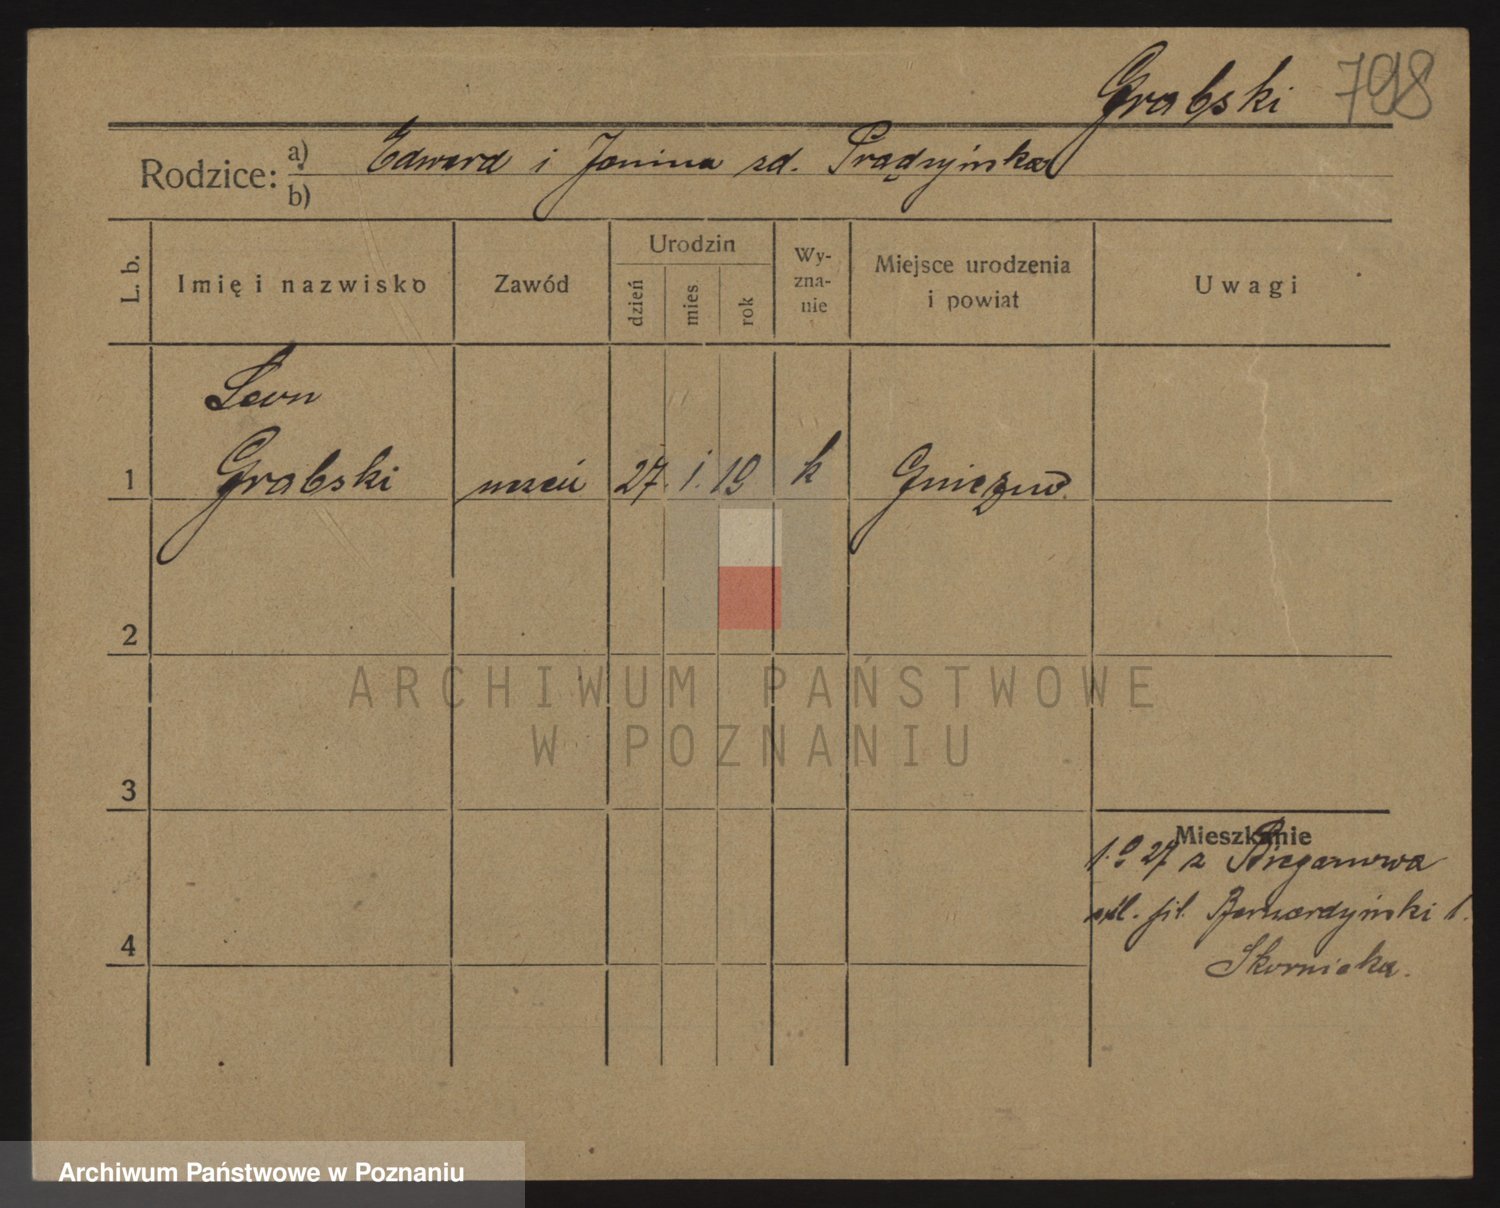 Grabski 798
Rodzice: a) Edward i Janina zd. Prądzyńska
b)
L. b. Imię i nazwisko Zawód Urodzin dzień mies. rok Wy-zna-nie Miejsce urodzenia i powiat Uwagi
Leon
1 Grabski uczeń 27. 1. 19 k Gniezno.
2
3
4
ARCHIWUM PAŃSTWOWE
W POZNANIU
Mieszkanie
1.9 27 z
pl. Bernardyński 1.
Skornicka.
Archiwum Państwowe w Poznaniu